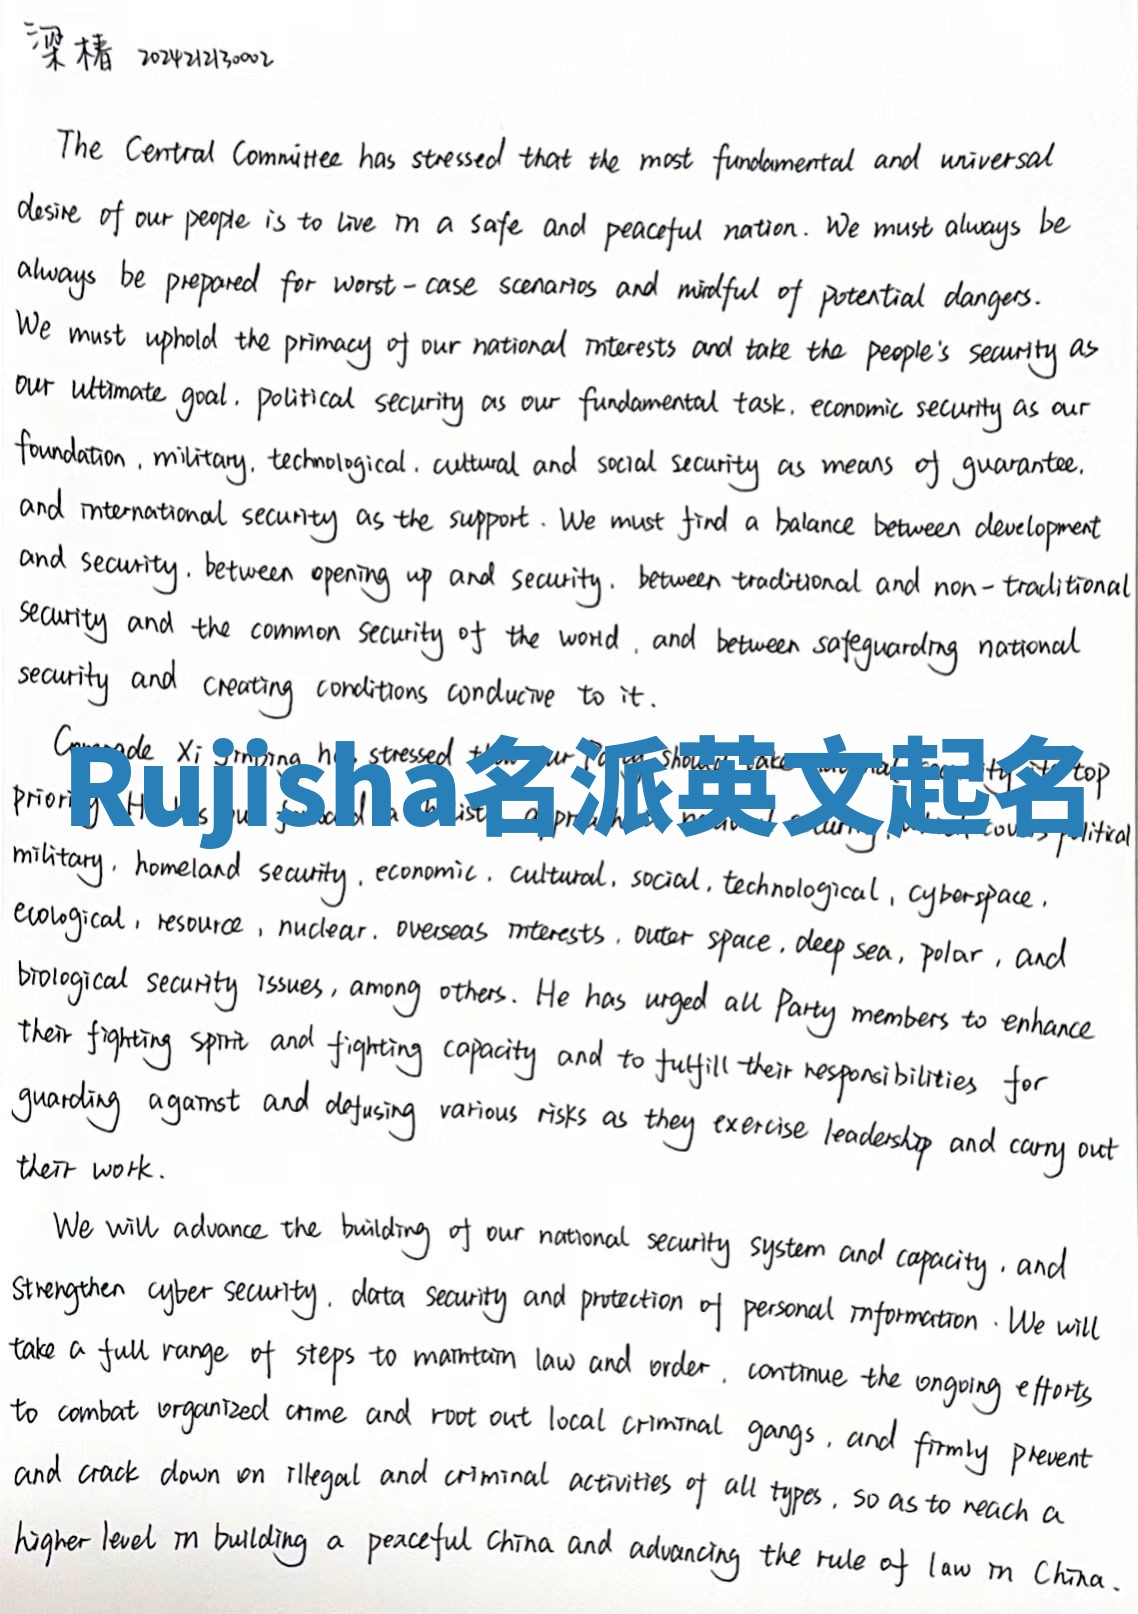 梁椿 2024212130002
The Central Committee has stressed that the most fundamental and universal
desire of our people is to live in a safe and peaceful nation. We must always be
always be prepared for worst-case scenarios and mindful of potential dangers.
We must uphold the primacy of our national interests and take the people's security as
our ultimate goal, political security as our fundamental task, economic security as our
foundation, military, technological, cultural and social security as means of guarantee,
and international security as the support. We must find a balance between development
and security, between opening up and security, between traditional and non-traditional
security and the common security of the world, and between safeguarding national
security and creating conditions conducive to it.
Comrade Xi Jinping has stressed our Party should take top
Rujisha名派英文起名
priority He has covers political
military, homeland security, economic, cultural, social, technological, cyberspace,
ecological, resource, nuclear, overseas interests, outer space, deep sea, polar, and
biological security issues, among others. He has urged all Party members to enhance
their fighting spirit and fighting capacity and to fulfill their responsibilities for
guarding against and defusing various risks as they exercise leadership and carry out
their work.
We will advance the building of our national security system and capacity, and
strengthen cyber security, data security and protection of personal information. We will
take a full range of steps to maintain law and order, continue the ongoing efforts
to combat organized crime and root out local criminal gangs, and firmly prevent
and crack down on illegal and criminal activities of all types, so as to reach a
higher level in building a peaceful China and advancing the rule of law in China.